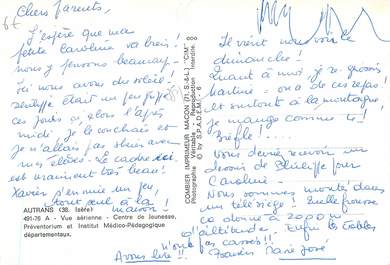 Chers Parents,
J'espère que ma
petite Caroline va bien !
nous y pensons beaucoup
Ici nous avons du soleil !
Philippe était un peu
ces jours ci, alors l'après
midi, je le couchais et
je n'allais pas skier avec
mes élèves. Le cadre ici
est vraiment très beau !
Xavier s'ennuie un peu,
tout seul à la maison !
AUTRANS (38. Isère)
491-76 A - Vue aérienne - Centre de Jeunesse,
Préventorium et Institut Médico-Pédagogique
départementaux.
COMBIER IMPRIMEUR MACON (71) (S.-&-L.) "CIM"
Photographie Véritable - Reproduction Interdite
© by S.P.A.D.E.M. - 6
Il vient nous voir ce
dimanche !
Quant à moi, je re-grossis
on a de ces repas
et surtout à la montagne
je mange comme 4 !
Brèfle !...
Vous devriez recevoir un
dessin de Philippe pour
Caroline
Nous sommes montés dans
un télésiège ! Quelle frousse
ça donne à 2000 m
d'altitude. Enfin les câbles
n'ont pas cassés !!
Avous lire !!
Marie José